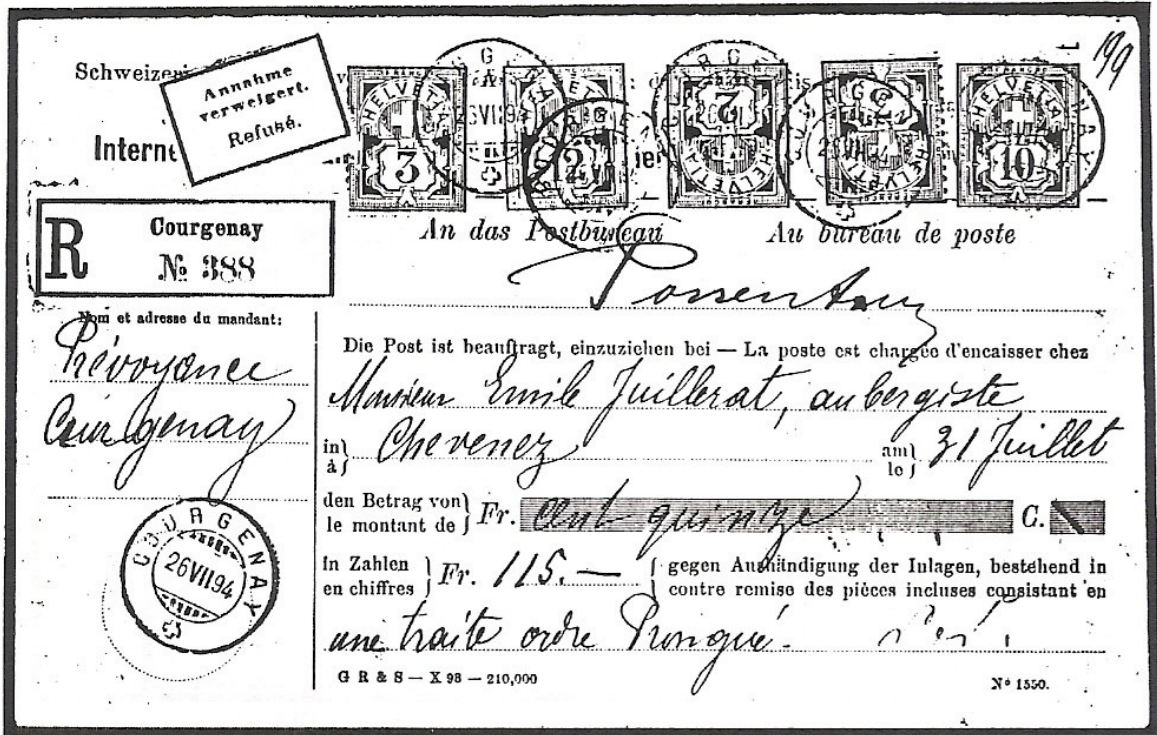 199
Schweizer
Annahme
verweigert.
Refusé.
Intern
HELVETIA 3
HELVETIA 2
HELVETIA
HELVETIA
HELVETIA 10
R Courgenay
№ 388
An das Postbureau Au bureau de poste
Porrentruy
Nom et adresse du mandant:
Prévoyance
Courgenay
Die Post ist beauftragt, einzuziehen bei — La poste est chargée d'encaisser chez
Monsieur Emile Juillerat, aubergiste
in à Chevenez am le 31 Juillet
den Betrag von
le montant de Fr. cent quinze C.
in Zahlen
en chiffres Fr. 115.— gegen Aushändigung der Inlagen, bestehend in
contre remise des pièces incluses consistant en
une traite ordre
COURGENAY
26 VII 94
G R & S — X 93 — 210,000
N° 1550.